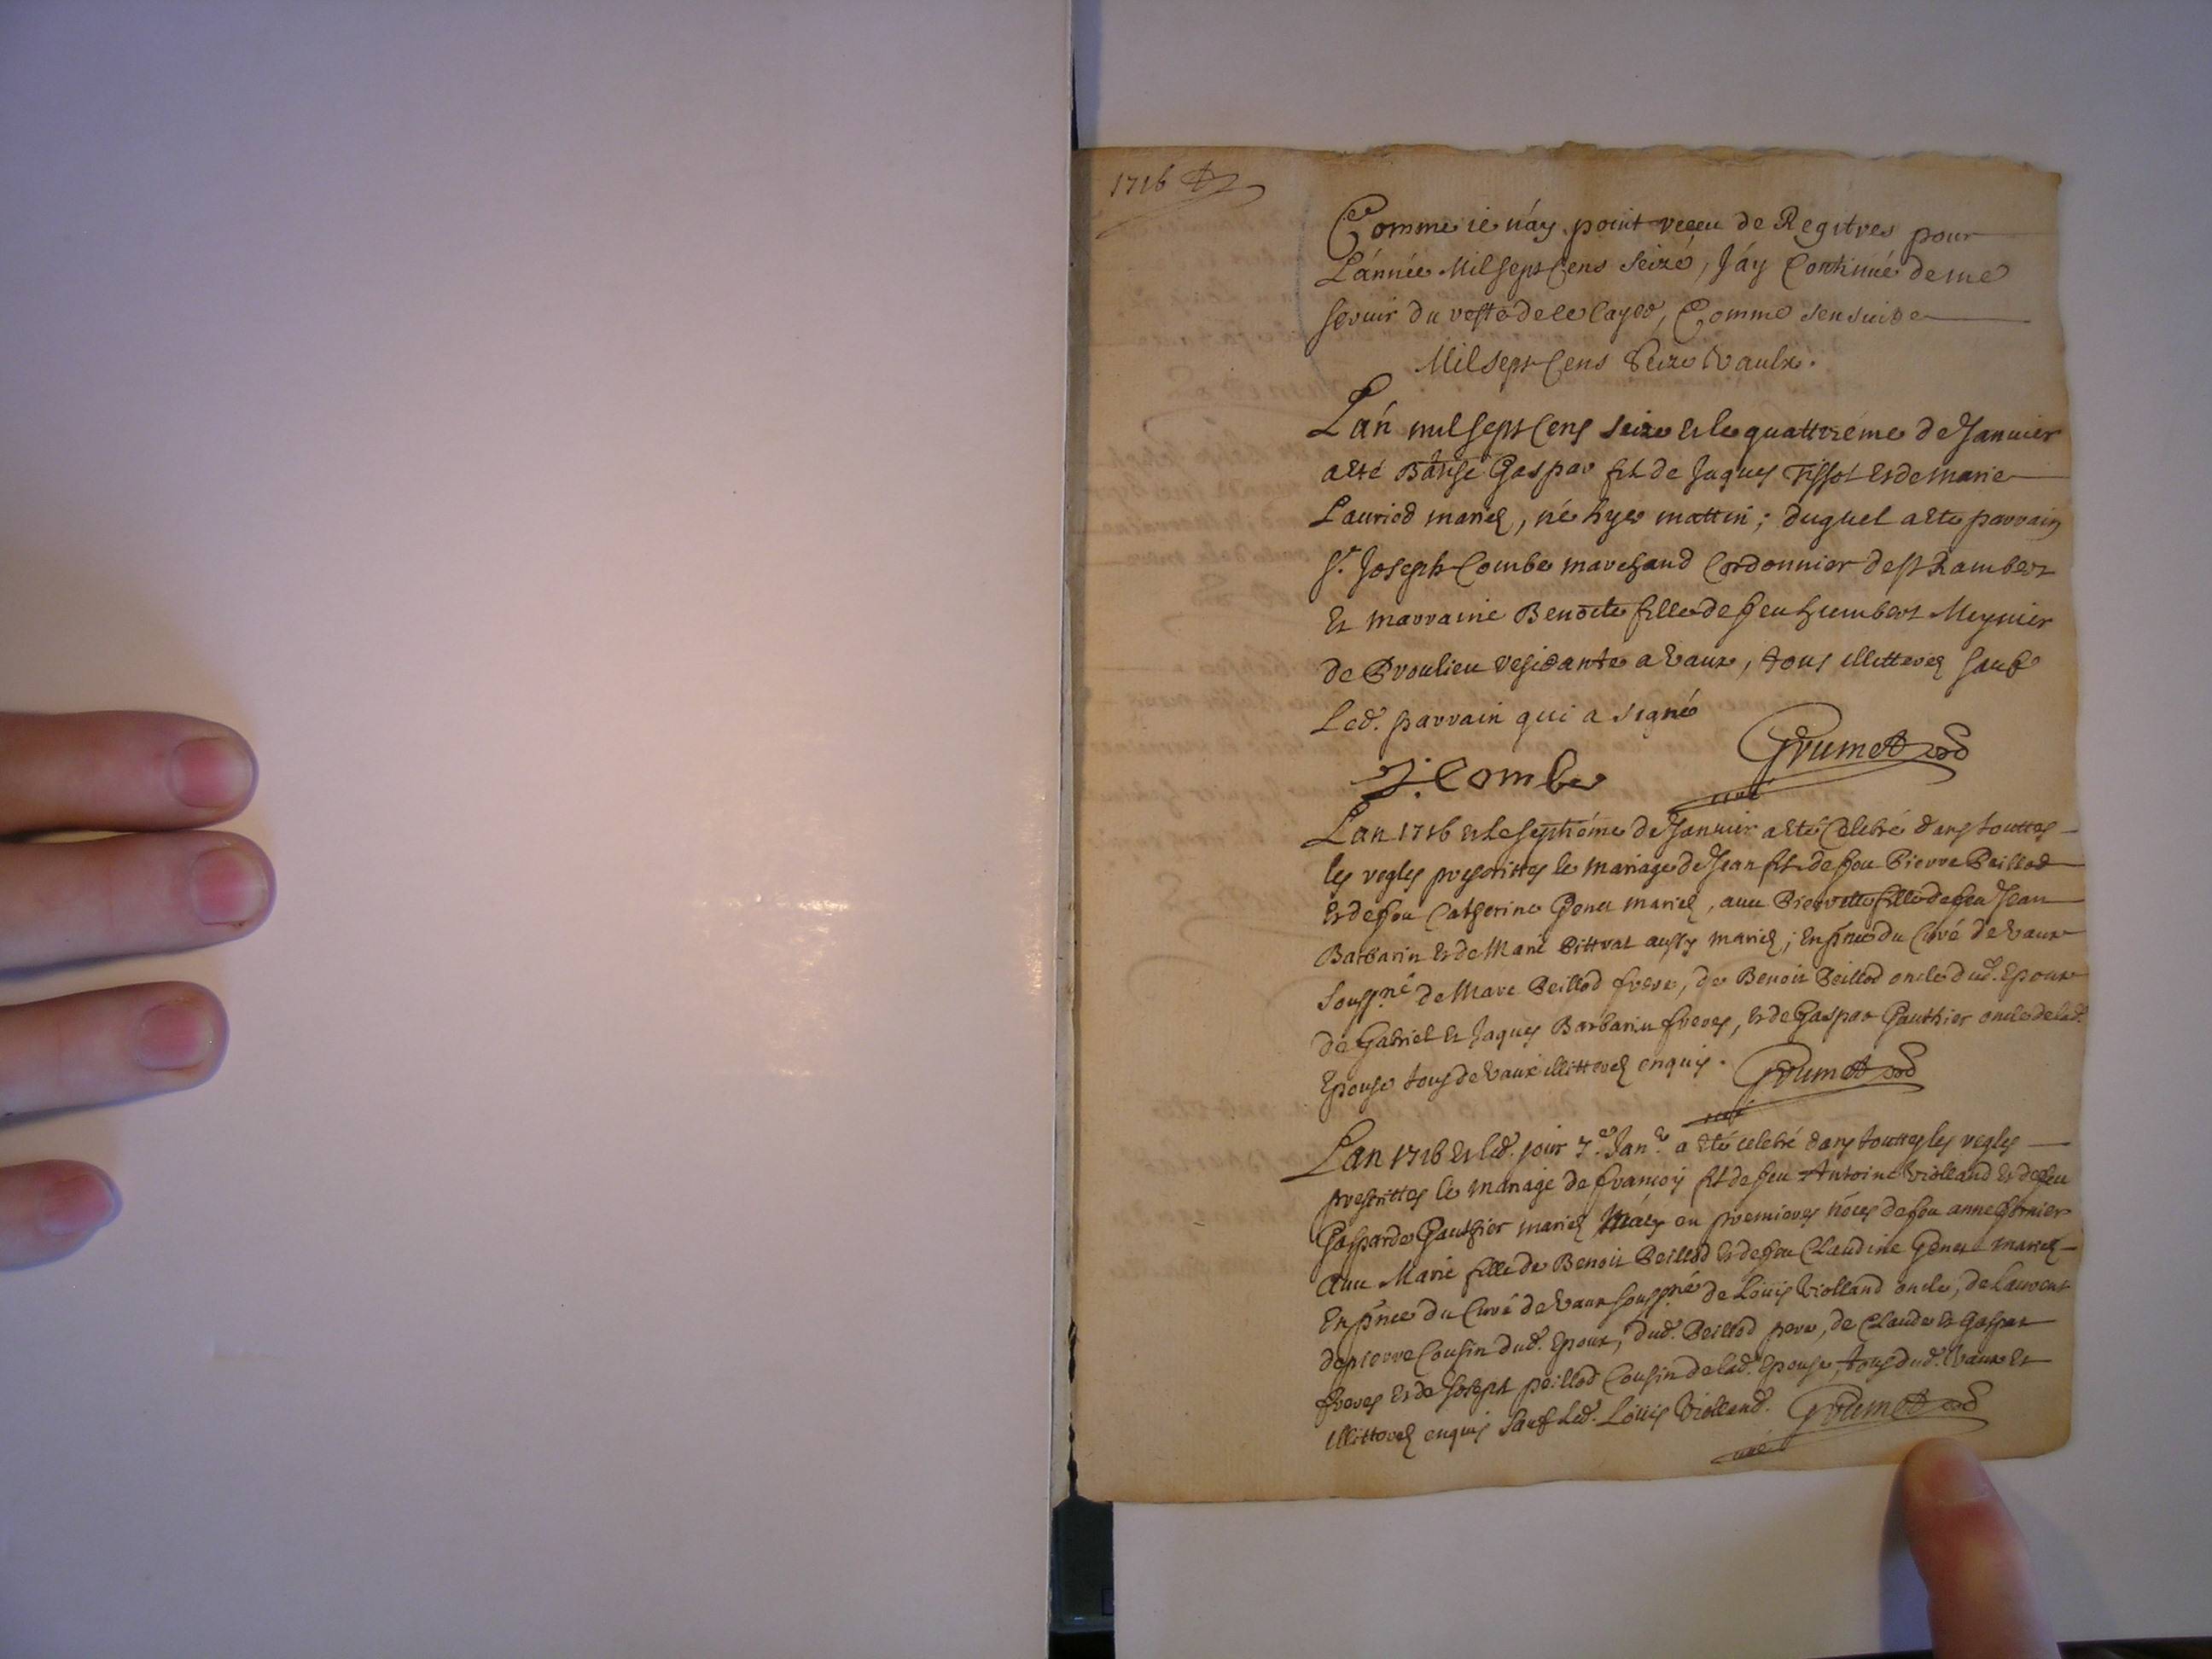 1716
Comme ie n'ay point receu de Regitres pour
L'année Mil sept Cens seize, J'ay Continué de me
servir du reste de ce Cayer, Comme sensuit
Mil sept Cens Seize Vaulx.
L'an mil sept Cens seize et le quattriéme de Janvier
a eté Batisé Gaspar fils de Jaques Tissot et de Marie
Lauriod mariez, né hyer mattin; duquel a eté parrain
Sr. Joseph Combe marchand Cordonnier de St Rambert
Et marraine Benoite fille de feu humbert Meynier
de Proulieu residante a Vaux, tous illitterez sauf
Led. parrain qui a signé
J. Combe
Grumet
curé
Lan 1716 et le septiéme de Janvier a eté Celebré dans touttes
les regles prescrittes le mariage de Jean fils de feu Pierre Peillod
et de feu Catherine Genet mariez, avec Pierrette fille de feu Jean
Barbarin et de Marie Bittrat aussy mariez; En pnce du Curé de Vaux
soussné de Marc Peillod frere, de Benoit Peillod oncle dud. Epoux
de Gabriel et Jaques Barbarin freres, et de Gaspar Gauthier oncle de lad.
Epouse tous de Vaux illitterez enquis. Grumet
curé
Lan 1716 et led. jour 7e. Janr. a eté celebré dans touttes les regles
prescrittes le mariage de françois fils de feu Antoine Violland et de feu
Gasparde Gauthier mariez en premieres nôces de feu anne fornier
avec Marie fille de Benoit Peillod et de feu Claudine Genet mariez
En pnce du Curé de Vaux soussné de Loüis Violland oncle, de Laurent
depierre Cousin dud. Epoux, dud. Peillod pere, de Claude et Gaspar
freres et de Joseph peillod Cousin de lad. Epouse, tous dud. Vaux et
illitterez enquis sauf led. Loüis Violland. Grumet
curé